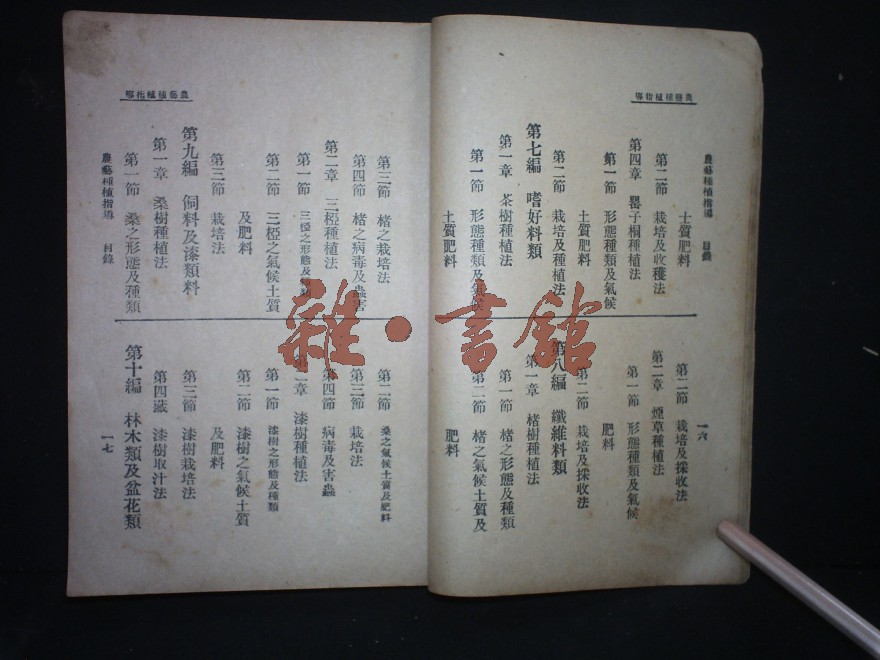 農藝種植指導
農藝種植指導 目錄
土質肥料
第二節 栽培及收穫法
第四章 罌子桐種植法
第一節 形態種類及氣候
土質肥料
第二節 栽培及種植法
第七編 嗜好料類
第一章 茶樹種植法
第一節 形態種類及氣候
土質肥料
一六
第二節 栽培及採收法
第二章 煙草種植法
第一節 形態種類及氣候
肥料
第二節 栽培及採收法
第八編 纖維料類
第一章 楮樹種植法
第一節 楮之形態及種類
第二節 楮之氣候土質及
肥料
農藝種植指導
第三節 楮之栽培法
第四節 楮之病毒及蟲害
第二章 三椏種植法
第一節 三椏之形態及種類
第二節 三椏之氣候土質
及肥料
第三節 栽培法
第九編 飼料及漆類料
第一章 桑樹種植法
第一節 桑之形態及種類
農藝種植指導 目錄
第二節 桑之氣候土質及肥料
第三節 栽培法
第四節 病毒及害蟲
第二章 漆樹種植法
第一節 漆樹之形態及種類
第二節 漆樹之氣候土質
及肥料
第三節 漆樹栽培法
第四 漆樹取汁法
第十編 林木類及盆花類
一七
雜·書館